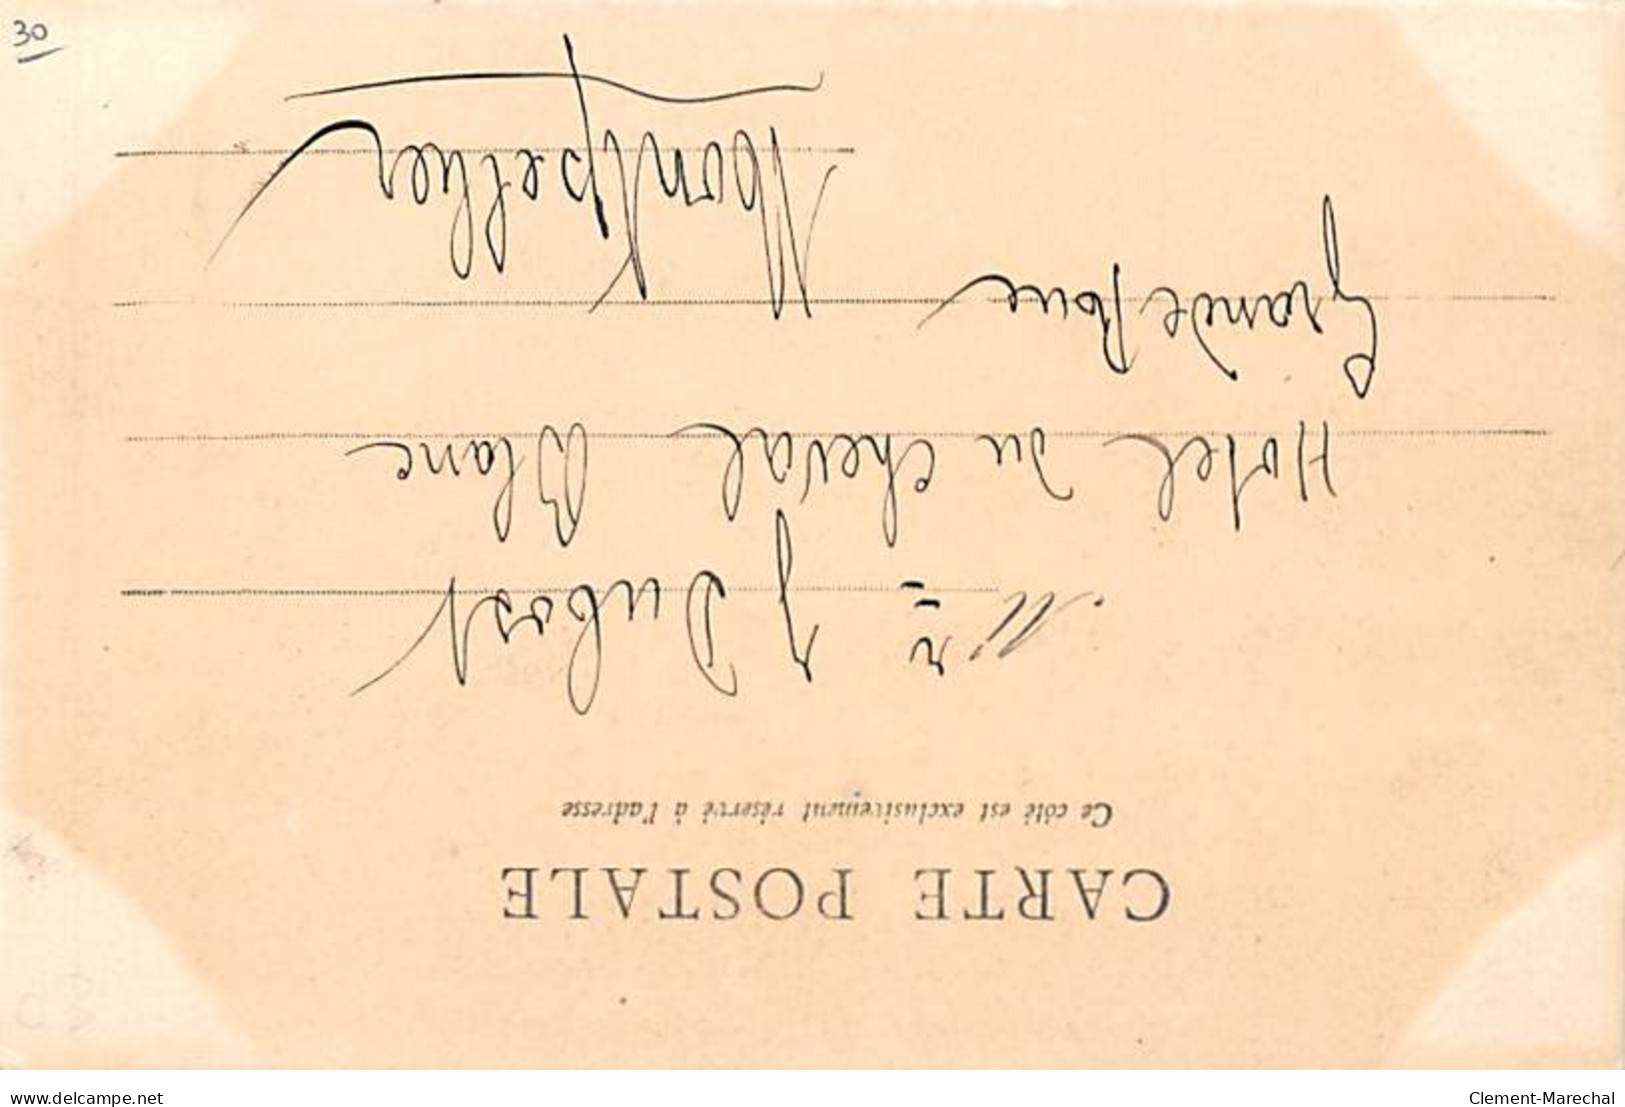 CARTE POSTALE
Ce côté est exclusivement réservé à l'adresse
Mr J Dubost
Hotel du cheval Blanc
Grande Rue
Montpellier
30
delcampe.net
Clement-Marechal